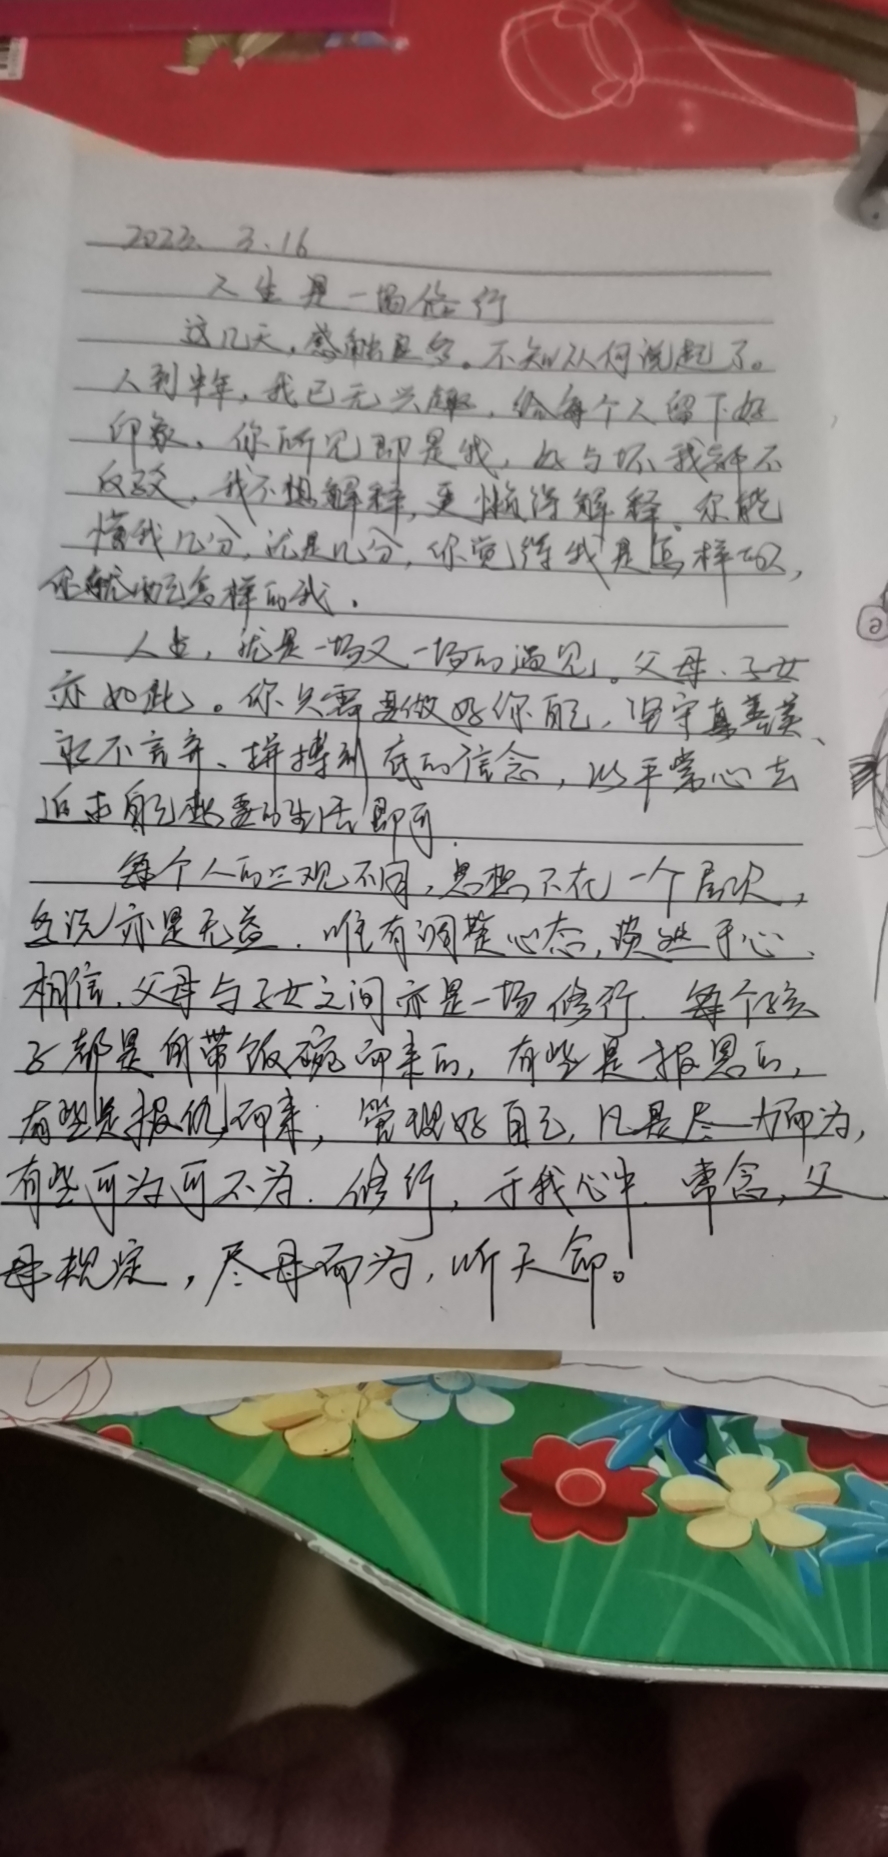 2022. 3.16
人生是一场修行
这几天，感触颇多。不知从何说起了。
人到中年，我已无兴趣，给每个人留下好
印象，你所见即是我，好与坏我都不
反驳，我不想解释，更懒得解释，你能
懂我几分，就是几分，你觉得我是怎样的，
你就配怎样的我。
人生，就是一场又一场的遇见。父母、子女
亦如此。你只需要做好你自己，坚守真善美、
永不言弃、拼搏到底的信念，以平常心去
追求自己想要的生活即可。
每个人的三观不同，思想不在一个层次，
多说亦是无益．唯有调整心态，淡然于心、
相信，父母与子女之间亦是一场修行．每个孩
子都是自带饭碗而来的，有些是报恩的，
有些是报仇而来；管理好自己，凡是尽力而为，
有些可为可不为．修行，于我心中．常念，父
母规定，尽母而为，听天命。